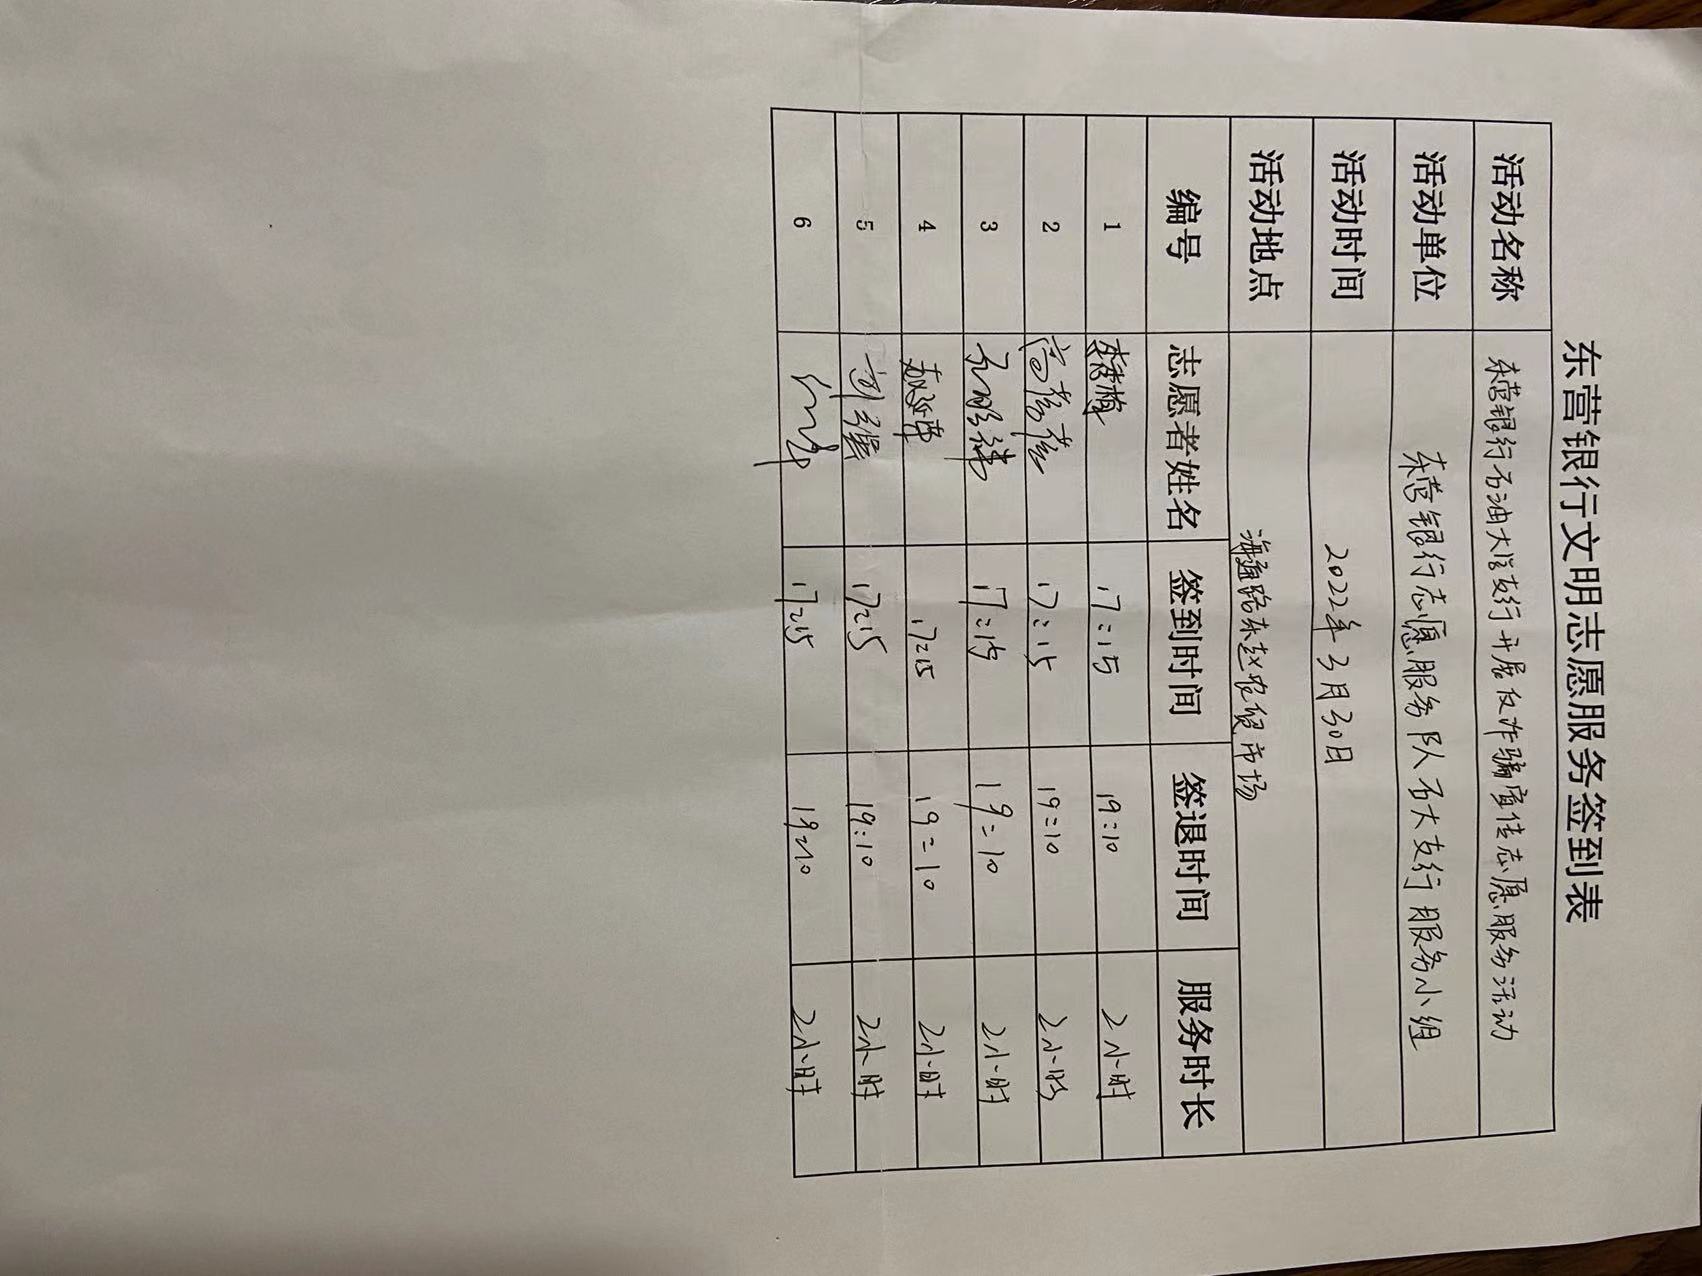 东营银行文明志愿服务签到表
活动名称 东营银行石油大学支行开展反诈骗宣传志愿服务活动
活动单位 东营银行志愿服务队石大支行服务小组
活动时间 2022年3月30日
活动地点 路东赵农贸市场
编号 志愿者姓名 签到时间 签退时间 服务时长
1 17:15 19:10 2小时
2 17:15 19:10 2小时
3 17:15 19:10 2小时
4 17:15 19:10 2小时
5 17:15 19:10 2小时
6 17:15 19:10 2小时